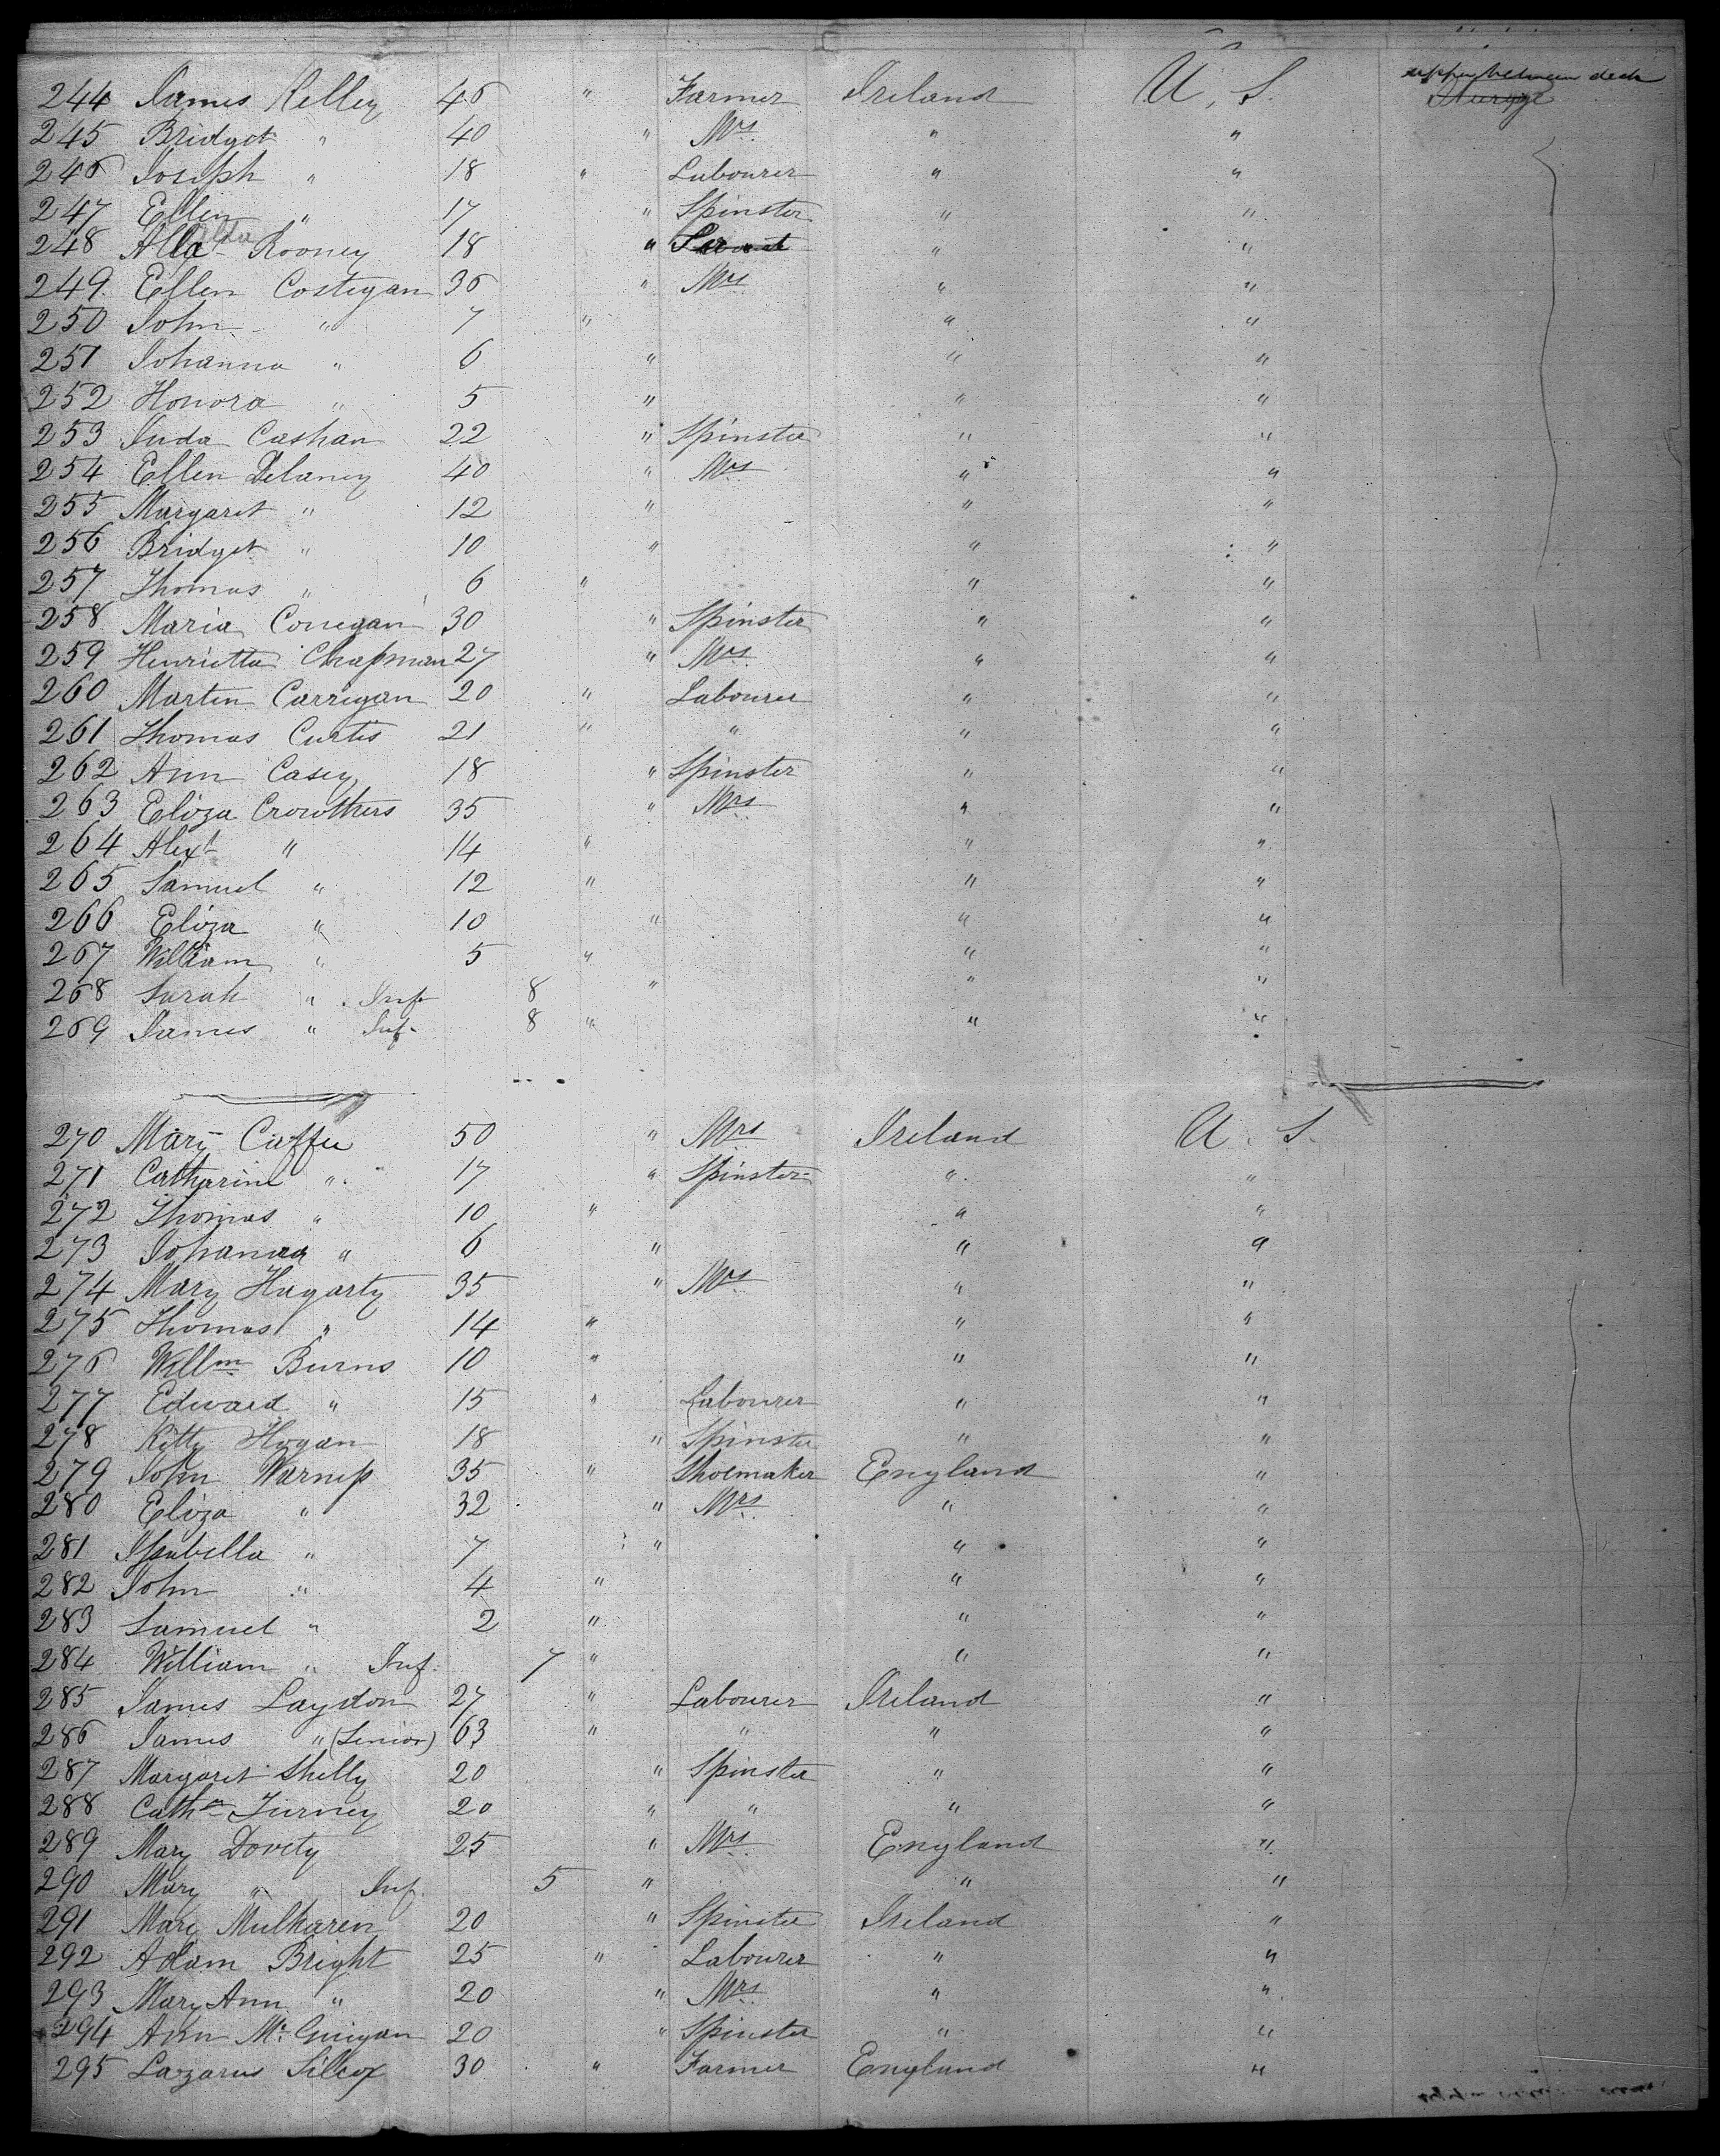 upper between deck
244 James Kelley 46 " Farmer Ireland U. S. Steerage
245 Bridget " 40 " Mrs " "
246 Joseph " 18 " Labourer " "
247 Ellen " 17 " Spinster " "
248 Rooney 18 " " "
249 Ellen Costegan 36 " Mrs " "
250 John " 7 " " "
251 Johanna " 6 " " "
252 Honora " 5 " " "
253 Juda Cashan 22 " Spinster " "
254 Ellen Delaney 40 " Mrs " "
255 Margaret " 12 " " "
256 Bridget " 10 " " "
257 Thomas " 6 " " "
258 Maria Conegan 30 " Spinster " "
259 Henrietta Chapman 27 " Mrs " "
260 Martin Carrigan 20 " Labourer " "
261 Thomas Curtis 21 " " " "
262 Ann Casey 18 " Spinster " "
263 Eliza Crowthers 35 " Mrs " "
264 Alexr " 14 " " "
265 Samuel " 12 " " "
266 Eliza " 10 " " "
267 William " 5 " " "
268 Sarah " Inf. 8 " " "
269 James " Inf. 8 " " "
270 Mary Caffee 50 " Mrs Ireland U. S.
271 Catharine " 17 " Spinster " "
272 Thomas " 10 " " "
273 Johanna " 6 " " "
274 Mary Hagarty 35 " Mrs " "
275 Thomas " 14 " " "
276 Willm Burns 10 " " "
277 Edward " 15 " Labourer " "
278 Kitty Hogan 18 " Spinster " "
279 John Warnep 35 " Shoemaker England "
280 Eliza " 32 " Mrs " "
281 Isabella " 7 " " "
282 John " 4 " " "
283 Samuel " 2 " " "
284 William " Inf. 7 " " "
285 James Laydon 27 " Labourer Ireland "
286 James " (Senior) 63 " " " "
287 Margaret Shelly 20 " Spinster " "
288 Cathn Tierney 20 " " " "
289 Mary Dovety 25 " Mrs England "
290 Mary " Inf. 5 " " "
291 Mary Mulharen 20 " Spinster Ireland "
292 Adam Bright 25 " Labourer " "
293 Mary Ann " 20 " Mrs " "
294 Ann Mc Guigan 20 " Spinster " "
295 Lazarus Silcox 30 " Farmer England "